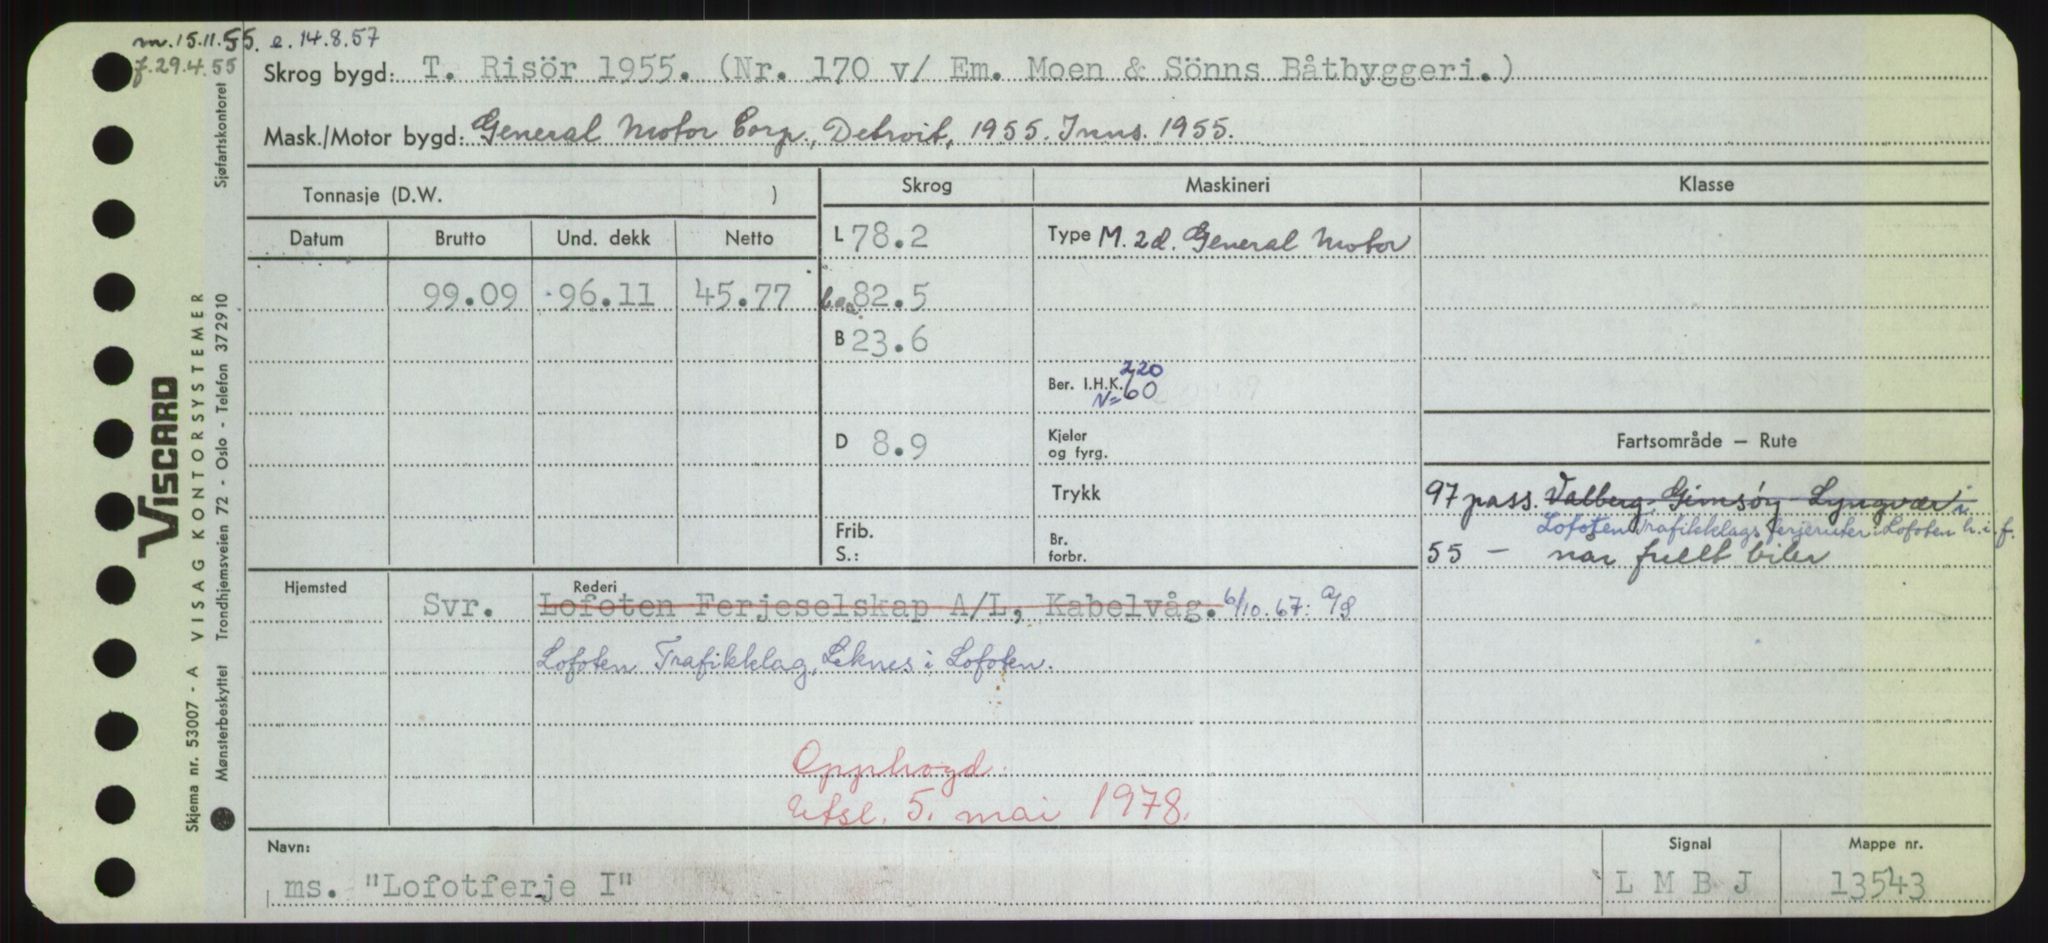 m. 15.11.55. e. 14.8.57
f. 29.4.55
Skrog bygd: T. Risör 1955. (Nr. 170 v/ Em. Moen & Sönns Båtbyggeri.)
Mask./Motor bygd: General Motor Corp., Detroit, 1955. Inns. 1955.
Tonnasje (D.W. )
Skrog
Maskineri
Klasse
Datum Brutto Und. dekk Netto
L 78.2
Type M. 2d. General Motor
99.09 96.11 45.77
l.o.a. 82.5
B 23.6
Ber. I.H.K. 220
N= 60
D 8.9
Kjeler
og fyrg.
Fartsområde — Rute
Trykk
97 pass. Valberg, Gimsøy - Lyngvær i
Lofoten Trafikklags ferjeruter i Lofoten h. i. f.
Frib.
S.:
Br.
forbr.
55 — når fullt biler
Hjemsted
Rederi
Svr. Lofoten Ferjeselskap A/L, Kabelvåg. 6/10.67: A/S
Lofoten Trafikklag, Leknes i Lofoten.
Opphogd.
Utsl. 5. mai 1978.
Navn:
Signal
Mappe nr.
ms. "Lofotferje I"
L M B J
13543
VISCARD
VISAG KONTORSYSTEMER
Skjema nr. 53007 - A
Mønsterbeskyttet Trondhjemsveien 72 - Oslo - Telefon 372910
Sjøfartskontoret